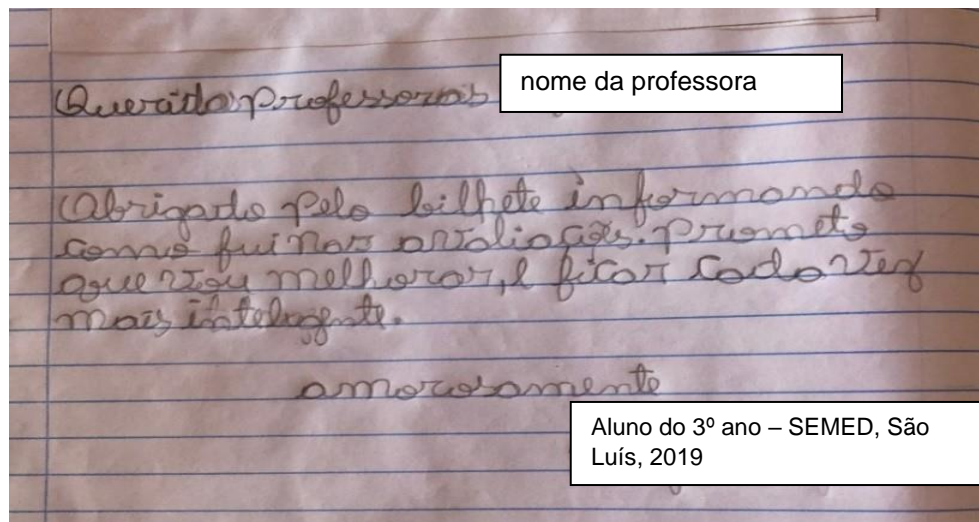 Querida professoras nome da professora
Obrigado pelo bilhete informando
como fui nas avaliações. Prometo
que vou melhorar, e ficar cada vez
mais inteligente.
amorosamente
Aluno do 3º ano – SEMED, São
Luís, 2019